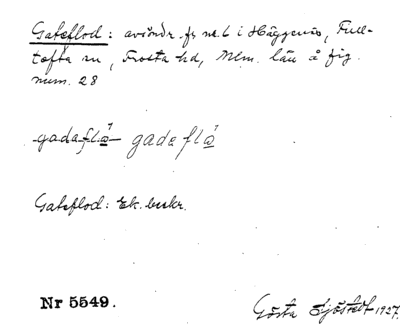 Gateflod: avsöndr. fr nr 6 i Häggenäs, Full-
tofta sn, Frosta hd, Mlm. län å fig.
num. 28
gadaflo gadaflo
Gateflod: Ek. beskr.
Nr 5549. Gösta Sjöstedt 1927.